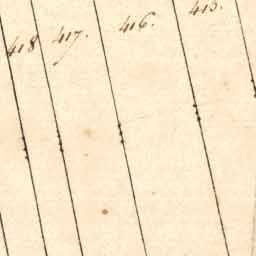 418 417. 416. 415.